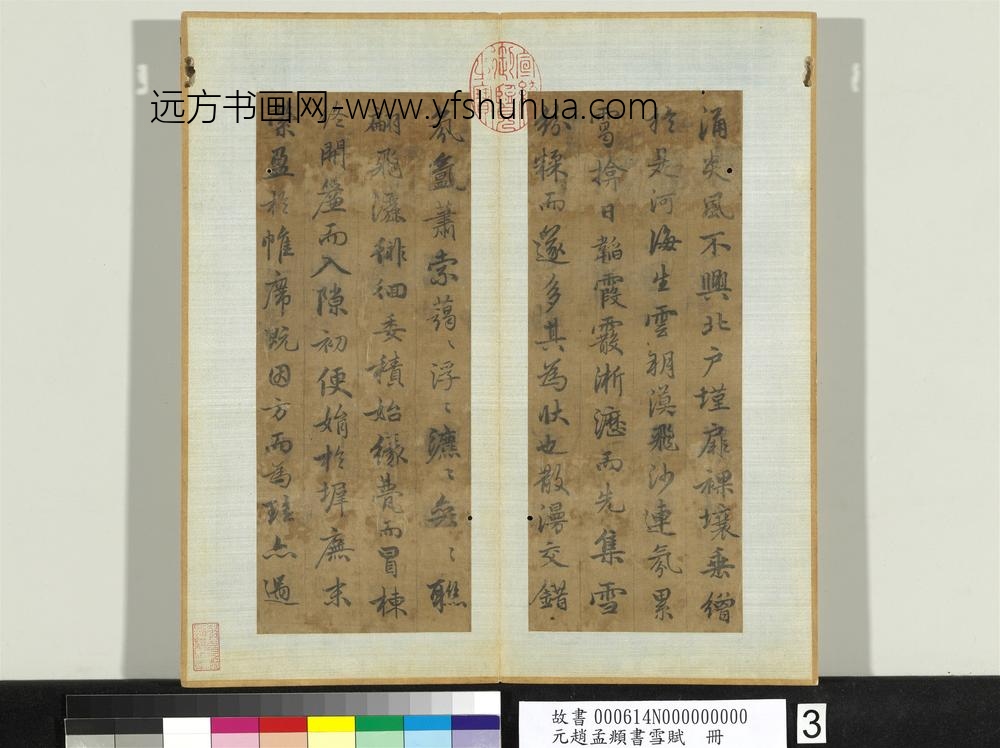 远方书画网-www.yfshuhua.com
涌炎風不興北戶墐扉裸壤垂繒
於是河海生雲朔漠飛沙連氛累
曷揜日韜霞霰淅瀝而先集雪
紛糅而遂多其為狀也散漫交錯
氛氳蕭索藹〻浮〻瀌〻奕〻聯
翩飛灑徘徊委積始緣甍而冒棟
終開簾而入隙初便娟於墀廡末
縈盈於帷席既因方而為珪亦遇
故書 000614N000000000
元趙孟頫書雪賦 冊
3